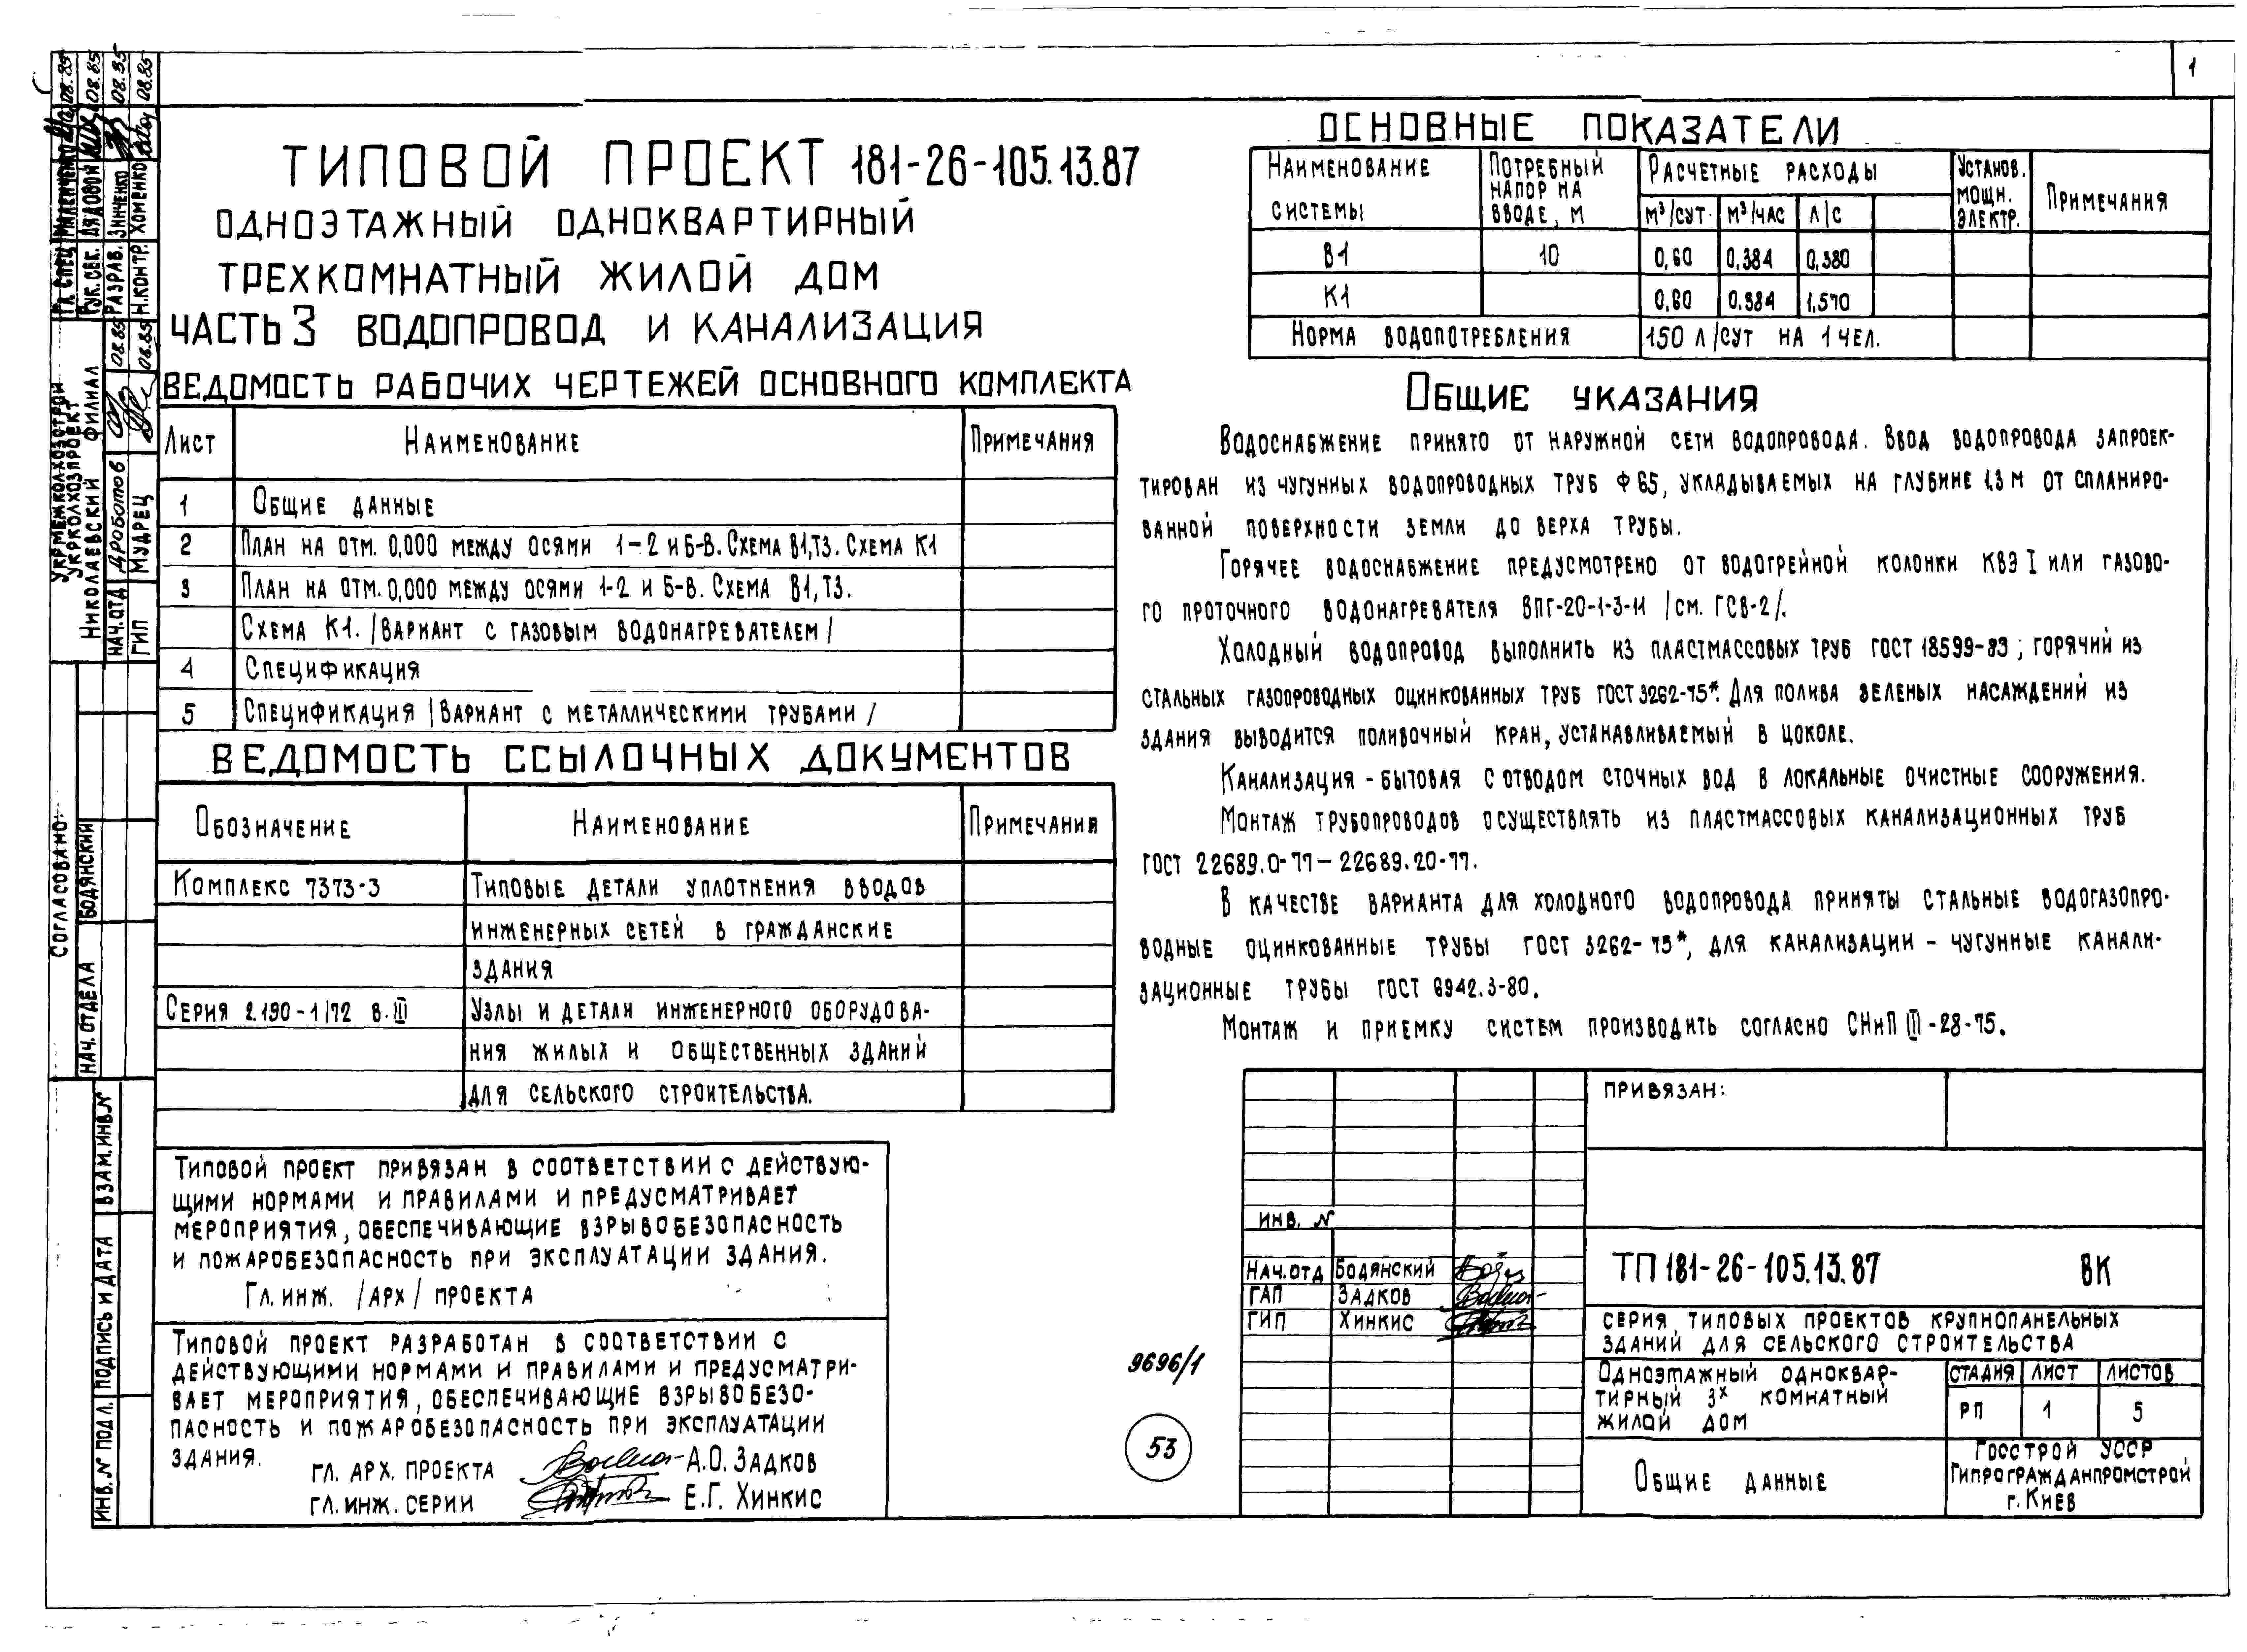 1
ТИПОВОЙ ПРОЕКТ 181-26-105.13.87
ОДНОЭТАЖНЫЙ ОДНОКВАРТИРНЫЙ
ТРЕХКОМНАТНЫЙ ЖИЛОЙ ДОМ
ЧАСТЬ 3 ВОДОПРОВОД И КАНАЛИЗАЦИЯ
ВЕДОМОСТЬ РАБОЧИХ ЧЕРТЕЖЕЙ ОСНОВНОГО КОМПЛЕКТА
Лист Наименование Примечания
1 Общие данные
2 План на отм. 0,000 между осями 1-2 и Б-В. Схема В1,Т3. Схема К1
3 План на отм. 0,000 между осями 1-2 и Б-В. Схема В1,Т3.
Схема К1. /вариант с газовым водонагревателем/
4 Спецификация
5 Спецификация /вариант с металлическими трубами/
ВЕДОМОСТЬ ССЫЛОЧНЫХ ДОКУМЕНТОВ
Обозначение Наименование Примечания
Комплекс 7373-3 Типовые детали уплотнения вводов
инженерных сетей в гражданские
здания
Серия 2.190-1/72 в. III Узлы и детали инженерного оборудова-
ния жилых и общественных зданий
для сельского строительства.
Типовой проект привязан в соответствии с действую-
щими нормами и правилами и предусматривает
мероприятия, обеспечивающие взрывобезопасность
и пожаробезопасность при эксплуатации здания.
Гл. инж. /арх/ проекта
Типовой проект разработан в соответствии с
действующими нормами и правилами и предусматри-
вает мероприятия, обеспечивающие взрывобезо-
пасность и пожаробезопасность при эксплуатации
здания.
гл. арх. проекта А.О. Задков
гл. инж. серии Е.Г. Хинкис
ОСНОВНЫЕ ПОКАЗАТЕЛИ
Наименование системы Потребный напор на вводе, м Расчетные расходы Установ. мощн. электр. Примечания
м³/сут. м³/час л/с
В1 10 0,60 0,384 0,380
К1 0,60 0.384 1,570
Норма водопотребления 150 л/сут на 1 чел.
Общие указания
Водоснабжение принято от наружной сети водопровода. Ввод водопровода запроек-
тирован из чугунных водопроводных труб Ф 65, укладываемых на глубине 1,3 м от спланиро-
ванной поверхности земли до верха трубы.
Горячее водоснабжение предусмотрено от водогрейной колонки КВЭ I или газово-
го проточного водонагревателя ВПГ-20-1-3-И /см. ГСВ-2/.
Холодный водопровод выполнить из пластмассовых труб ГОСТ 18599-83; горячий из
стальных газопроводных оцинкованных труб ГОСТ 3262-75*. Для полива зеленых насаждений из
здания выводится поливочный кран, устанавливаемый в цоколе.
Канализация - бытовая с отводом сточных вод в локальные очистные сооружения.
Монтаж трубопроводов осуществлять из пластмассовых канализационных труб
ГОСТ 22689.0-77 — 22689.20-77.
В качестве варианта для холодного водопровода приняты стальные водогазопро-
водные оцинкованные трубы ГОСТ 3262-75*, для канализации - чугунные канали-
зационные трубы ГОСТ 6942.3-80.
Монтаж и приемку систем производить согласно СНиП III-28-75.
ПРИВЯЗАН:
ИНВ. N
Нач.отд Бодянский
ГАП Задков
ГИП Хинкис
ТП 181-26-105.13.87 ВК
СЕРИЯ ТИПОВЫХ ПРОЕКТОВ КРУПНОПАНЕЛЬНЫХ
ЗДАНИЙ ДЛЯ СЕЛЬСКОГО СТРОИТЕЛЬСТВА
Одноэтажный одноквар-
тирный 3х комнатный
жилой дом
СТАДИЯ ЛИСТ ЛИСТОВ
РП 1 5
Общие данные
Госстрой УССР
Гипрогражданпромстрой
г. Киев
9696/1
53
Гл. спец Миленченко 08.85
Рук. сек. Лядовой 08.85
Разраб. Зинченко 08.85
Н.контр. Хоменко 08.85
Укрмежколхозстрой
Укрколхозпроект
Николаевский филиал
Нач. отд Дроботов 08.85
ГИП Мудрец 08.85
Согласовано:
Нач. отдела Бодянский
Взам. инв. N
Подпись и дата
Инв. N подл.